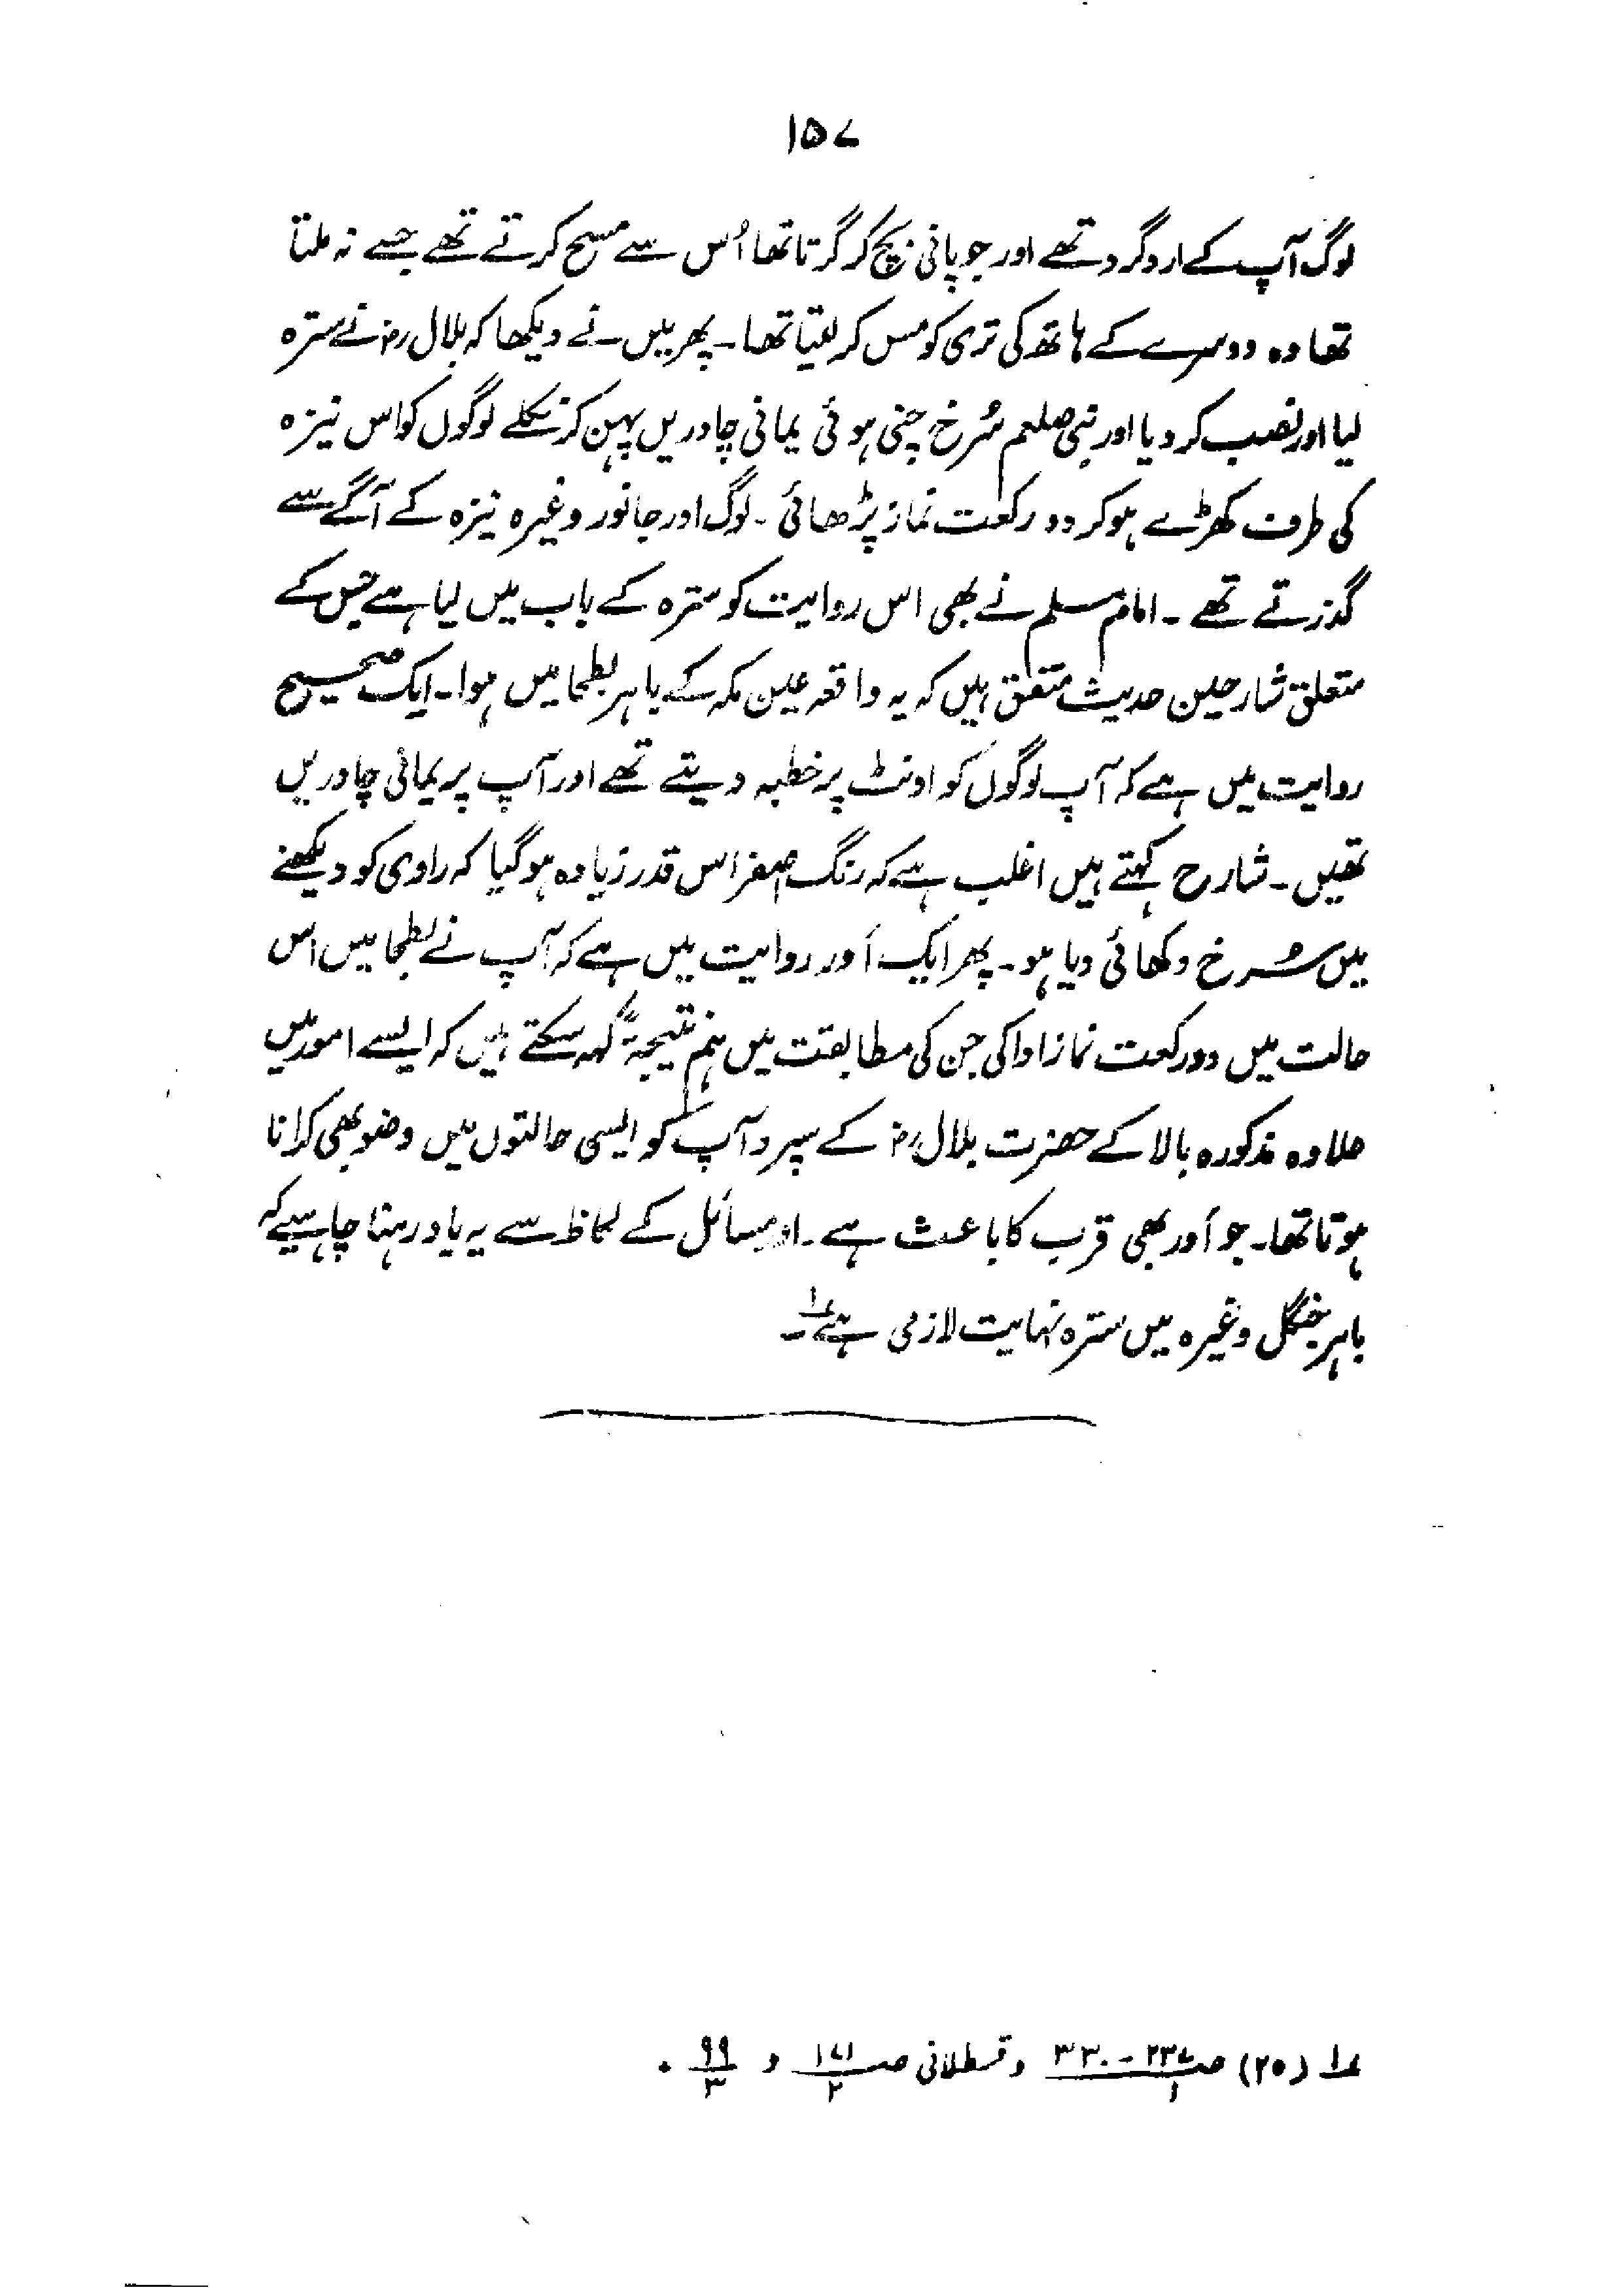 ۱۵۷
لوگ آپ کے ارد گرد تھے اور جو پانی بچ کر گرتا تھا اُس سے مسح کرتے تھے جسے نہ ملتا
تھا وہ دوسرے کے ہاتھ کی تری کو مس کر لیتا تھا۔ پھر میں نے دیکھا کہ بلال رض نے سترہ
لیا اور نصب کر دیا اور نبی صلعم سُرخ چنی ہوئی یمانی چادریں پہن کر نکلے لوگوں کو اس نیزہ
کی طرف کھڑے ہو کر دو رکعت نماز پڑھائی۔ لوگ اور جانور وغیرہ نیزہ کے آگے سے
گذرتے تھے۔ امام مسلم نے بھی اس روایت کو سترہ کے باب میں لیا ہے جس کے
متعلق شارحین حدیث متفق ہیں کہ یہ واقعہ عین مکہ کے باہر بطحا میں ہوا۔ ایک صحیح
روایت میں ہے کہ آپ لوگوں کو اونٹ پر خطبہ دیتے تھے اور آپ پر یمانی چادریں
تھیں۔ شارح کہتے ہیں اغلب ہے کہ رنگ اصفر اس قدر زیادہ ہو گیا کہ راوی کو دیکھنے
میں سُرخ دکھائی دیا ہو۔ پھر ایک اَور روایت میں ہے کہ آپ نے بطحا میں اس
حالت میں دو رکعت نماز ادا کی جن کی مطابقت میں ہم نتیجۃً کہہ سکتے ہیں کہ ایسے امور میں
علاوہ مذکورہ بالا کے حضرت بلال رض کے سپرد آپ کو ایسی حالتوں میں وضو بھی کرانا
ہوتا تھا۔ جو اَور بھی قرب کا باعث ہے۔ اور مسائل کے لحاظ سے یہ یاد رہنا چاہیے کہ
باہر جنگل وغیرہ میں سترہ نہایت لازمی ہے ؎۱۔
؎۱ (۲۵) صـ ۲۳۷-۳۳۰/۱ و قسطلانی صـ ۱۷۱/۲ و ۹۹/۳ ۔